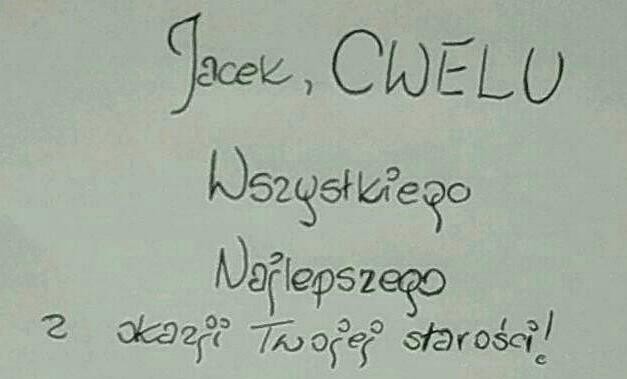 Jacek, CWELU
Wszystkiego
Najlepszego
z okazji Twojej starości!